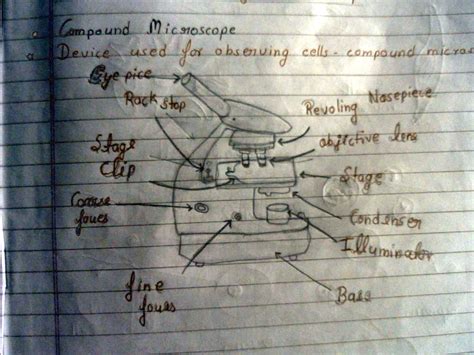 Compound Microscope
Device used for observing cells - compound micros
Eye pice
Rack stop
Revoling Nosepiece
objective lens
Stage
Clip
Stage
Coarse
foues
Condenser
Illuminator
fine
foues
Base